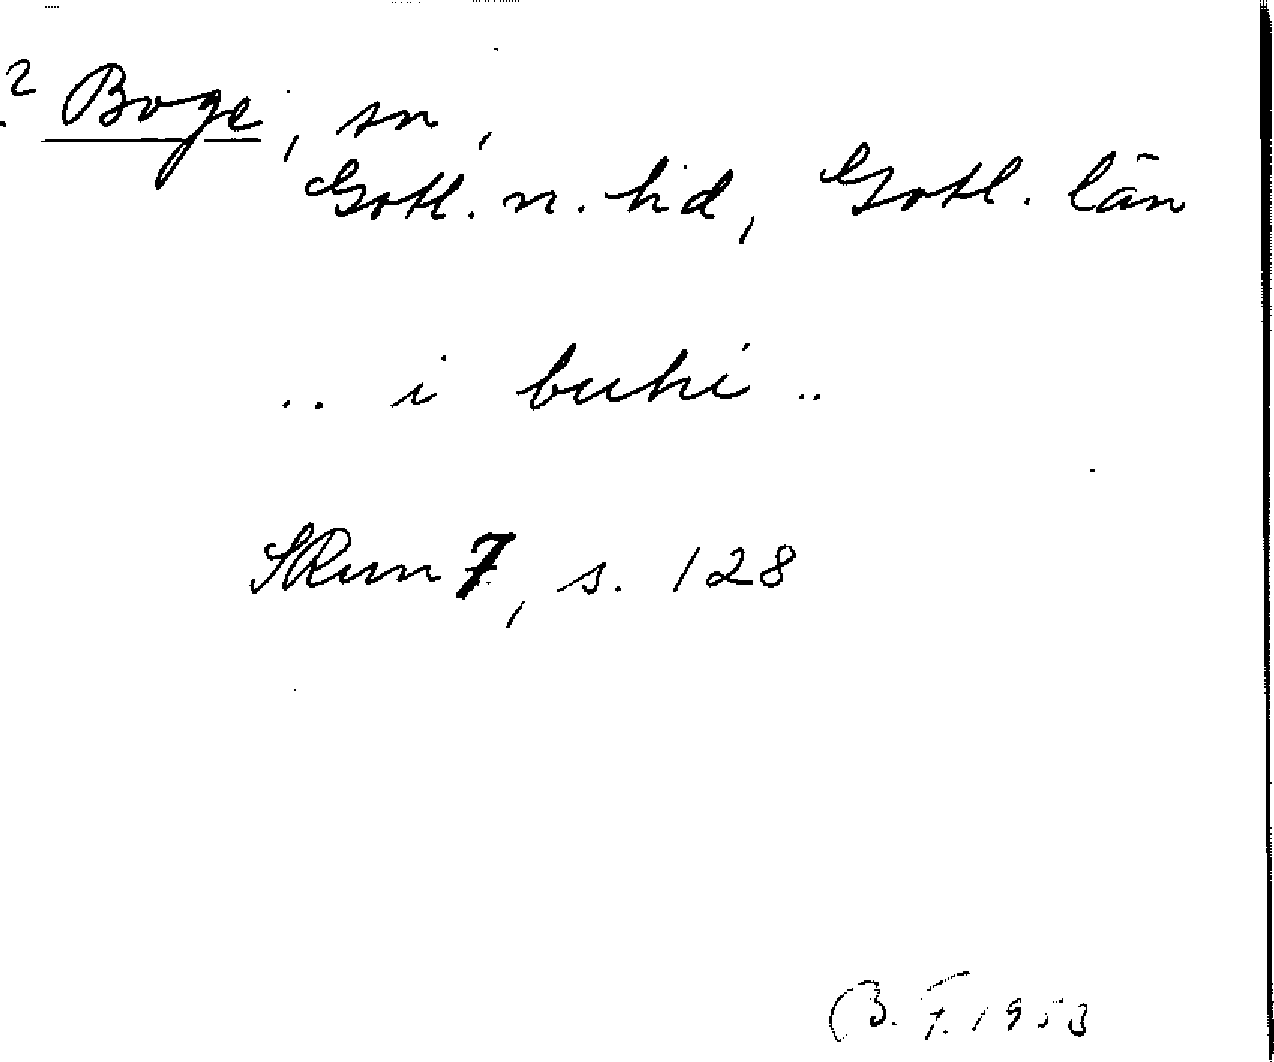 ? Boge, sn,
Gotl. n. hd, Gotl. län
.. i buhi ..
SRun 7, s. 128
B. F. 1953